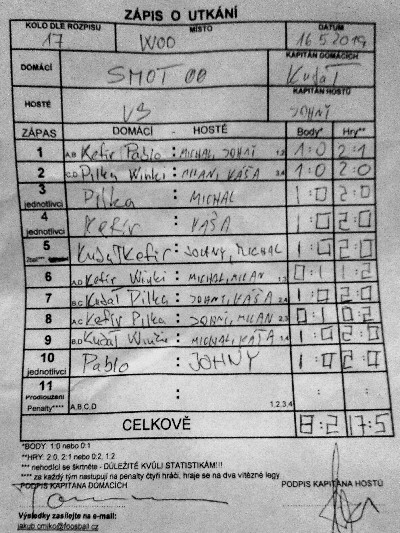 ZÁPIS O UTKÁNÍ
KOLO DLE ROZPISU MÍSTO DATUM
17 WOO 16 5 2019
DOMÁCÍ SMOT 00 KAPITÁN DOMÁCÍCH
KUDAŤ
HOSTÉ VS KAPITÁN HOSTŮ
JOHNY
ZÁPAS DOMÁCÍ - HOSTÉ Body* Hry**
1 A,B Kefír Pablo : MICHAL, JOHNY 1,2 1:0 2:1
2 C,D Pilka Winki : MILAN, KÁŠA 3,4 1:0 2:0
3 jednotlivci Pilka : MICHAL 1:0 2:0
4 jednotlivci Kefír : KÁŠA 1:0 2:0
5 Kudať Kefír : JOHNY, MICHAL 1:0 2:0
6 A,D Kefír Winki : MICHAL, MILAN 1,3 0:1 1:2
7 B,C Kudať Pilka : JOHNY, KÁŠA 2,4 1:0 2:0
8 A,C Kefír Pilka : JOHNY, MILAN 2,3 0:1 0:2
9 B,D Kudať Winki : MICHAL, KÁŠA 1,4 1:0 2:0
10 jednotlivci Pablo : JOHNY 1:0 2:0
11 Prodloužení Penalty**** A,B,C,D : 1,2,3,4 : :
CELKOVĚ 8:2 17:5
*BODY: 1:0 nebo 0:1
**HRY: 2:0, 2:1 nebo 0:2, 1:2
*** nehodící se škrtněte - DŮLEŽITÉ KVŮLI STATISTIKÁM!!!
**** za každý tým nastupují na penalty čtyři hráči, hraje se na dva vítězné legy
PODPIS KAPITÁNA DOMÁCÍCH PODPIS KAPITÁNA HOSTŮ
Výsledky zasílejte na e-mail:
jakub.omiko@foosball.cz